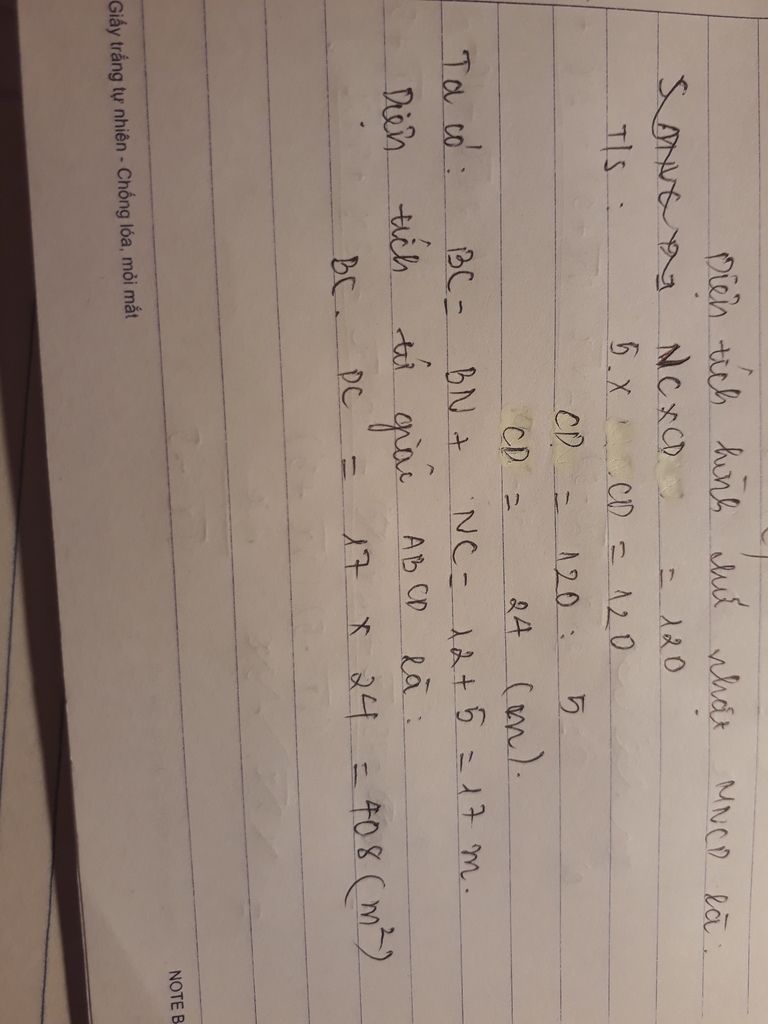 Diện tích hình chữ nhật MNCD là:
NC x CD = 120
T/s: 5. x CD = 120
CD = 120 : 5
CD = 24 (m).
Ta có: BC = BN + NC = 12 + 5 = 17 m.
Diện tích tứ giác ABCD là:
BC. DC = 17 x 24 = 408 (m²)
Giấy trắng tự nhiên - Chống lóa, mỏi mắt
NOTE B